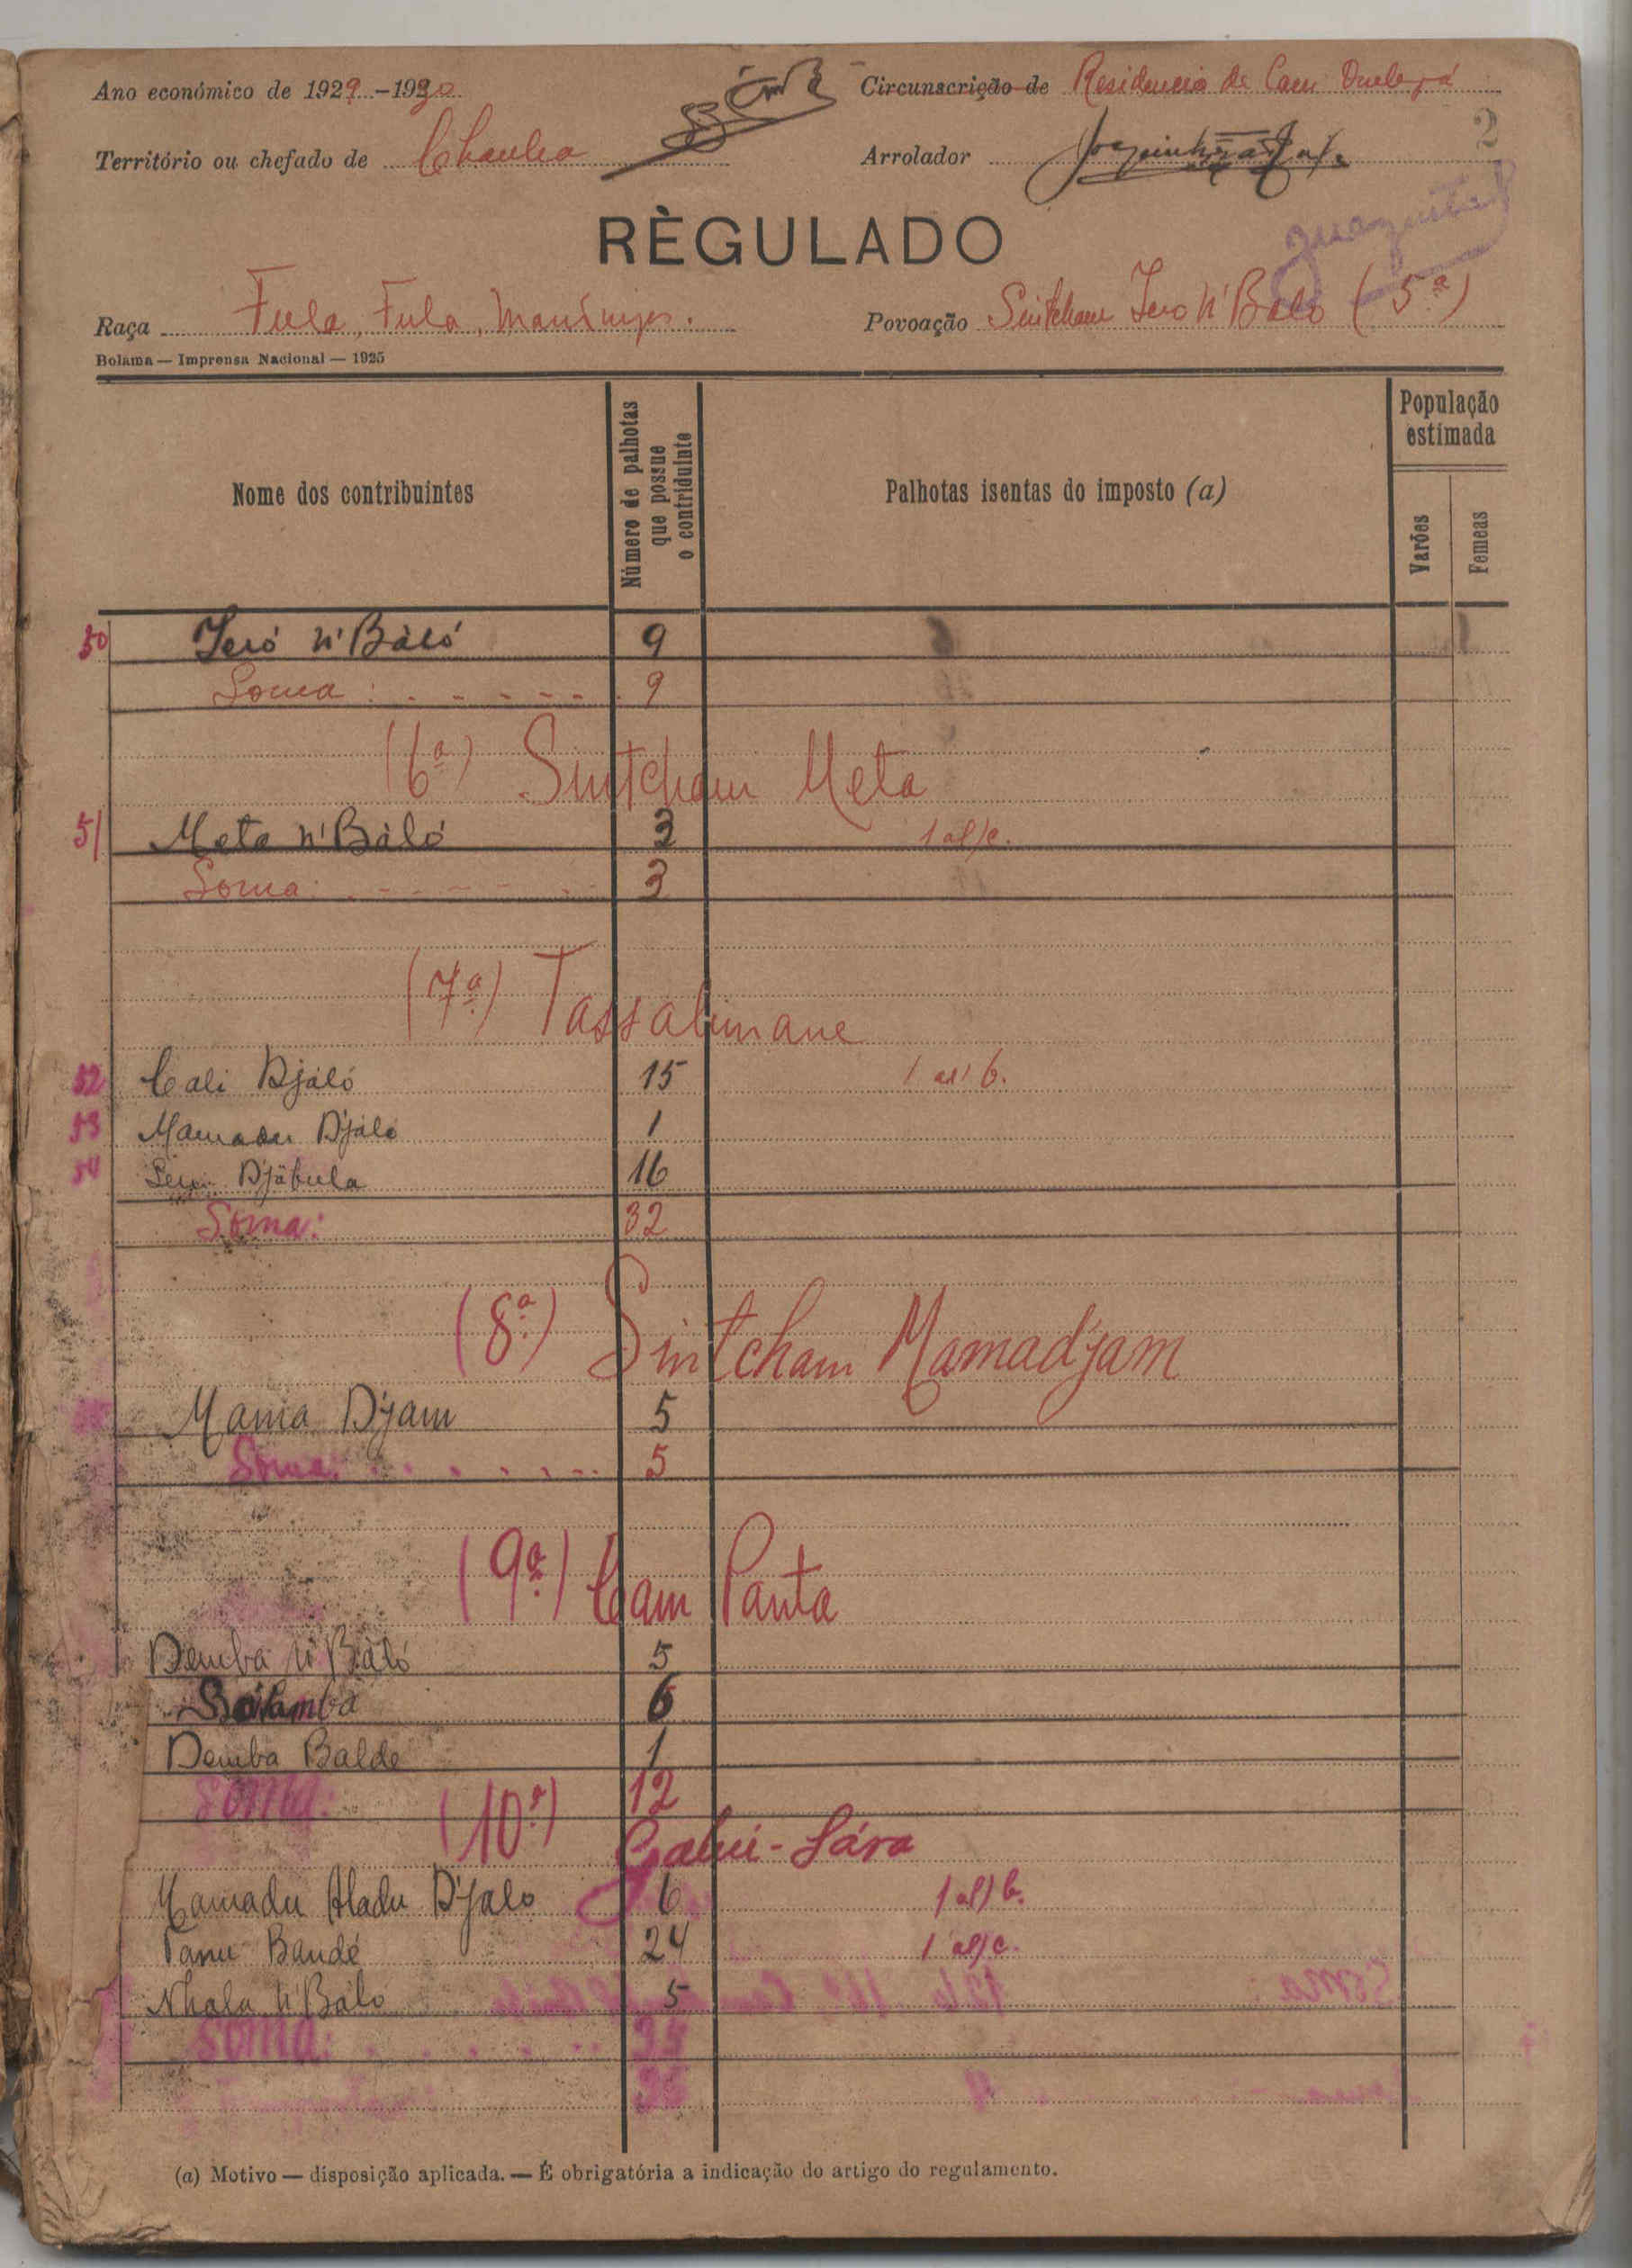 Ano económico de 1929-1930 Circunscrição de Residencia de Cam
2
Território ou chefado de Arrolador
RÈGULADO
Raça Fula, Fula, Povoação Sintcham Jero n'Balo (5ª)
Bolama — Imprensa Nacional — 1925
Nome dos contribuintes Número de palhotas que possue o contriduinte Palhotas isentas do imposto (a) População estimada Varões Femeas
50 Jeró n'Báló 9
Soma: 9
(6ª) Sintcham Meta
51 Meta n'Báló 3
Soma: 3
(7ª) Tassalimane
52 Cali Djáló 15
53 Mamadu Djáló 1
54 Djábula 16
Soma: 32
(8ª) Sintcham Mamadjam
Mama Djam 5
Soma: 5
(9ª) Cam Panta
Demba n'Báló 5
6
Demba Balde 1
Soma: 12
(10ª) Gabui-Sára
Mamadu Aladu D'jalo 6
Panu Bandé 24
Nhala n'Báló 5
Soma: 35
(a) Motivo — disposição aplicada. — É obrigatória a indicação do artigo do regulamento.